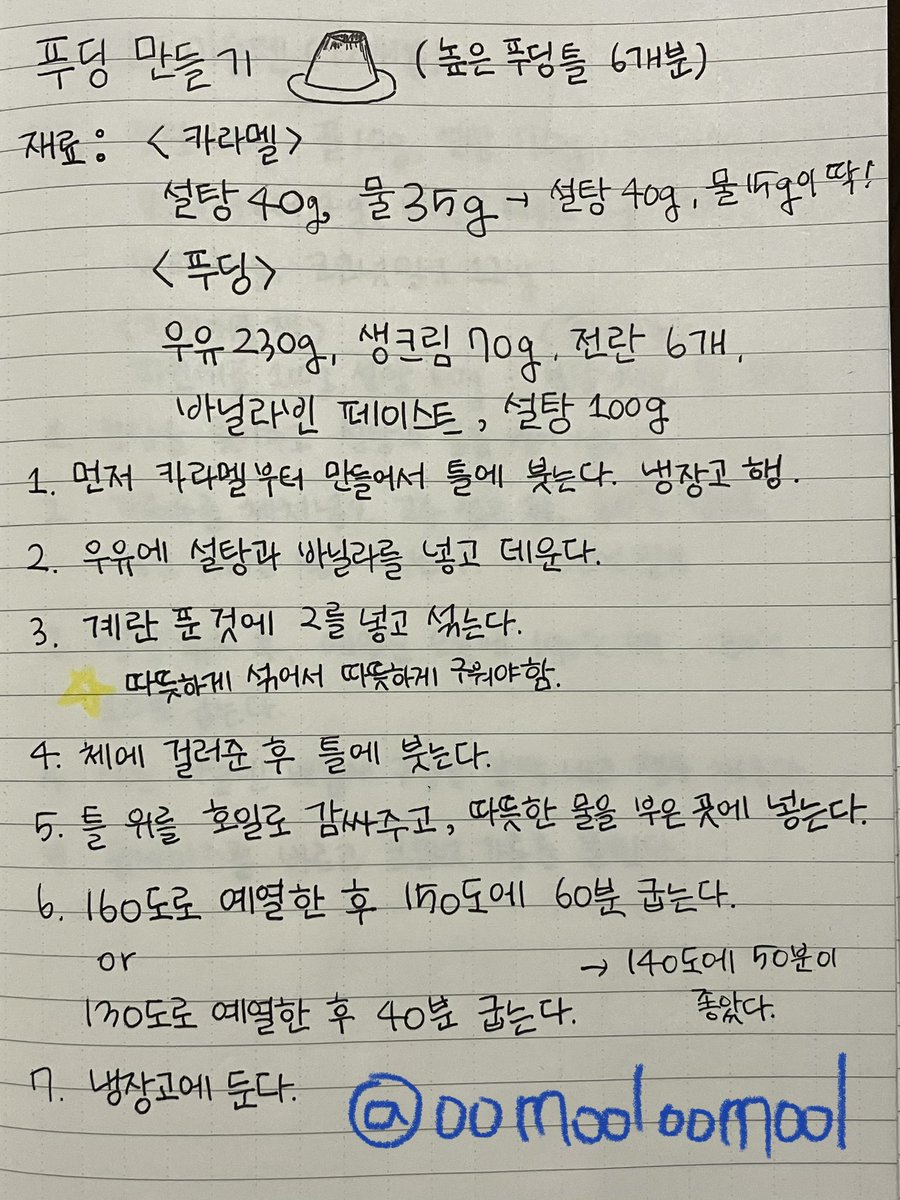 푸딩 만들기 (높은 푸딩틀 6개분)
재료: <카라멜>
설탕 40g, 물 35g → 설탕 40g, 물 15g이 딱!
<푸딩>
우유 230g, 생크림 70g, 전란 6개,
바닐라빈 페이스트, 설탕 100g
1. 먼저 카라멜부터 만들어서 틀에 붓는다. 냉장고 행.
2. 우유에 설탕과 바닐라를 넣고 데운다.
3. 계란 푼 것에 2를 넣고 섞는다.
따뜻하게 섞어서 따뜻하게 구워야함.
4. 체에 걸러준 후 틀에 붓는다.
5. 틀 위를 호일로 감싸주고, 따뜻한 물을 부은 곳에 넣는다.
6. 160도로 예열한 후 150도에 60분 굽는다.
or
130도로 예열한 후 40분 굽는다. → 140도에 50분이
좋았다.
7. 냉장고에 둔다.
@oomooloomool